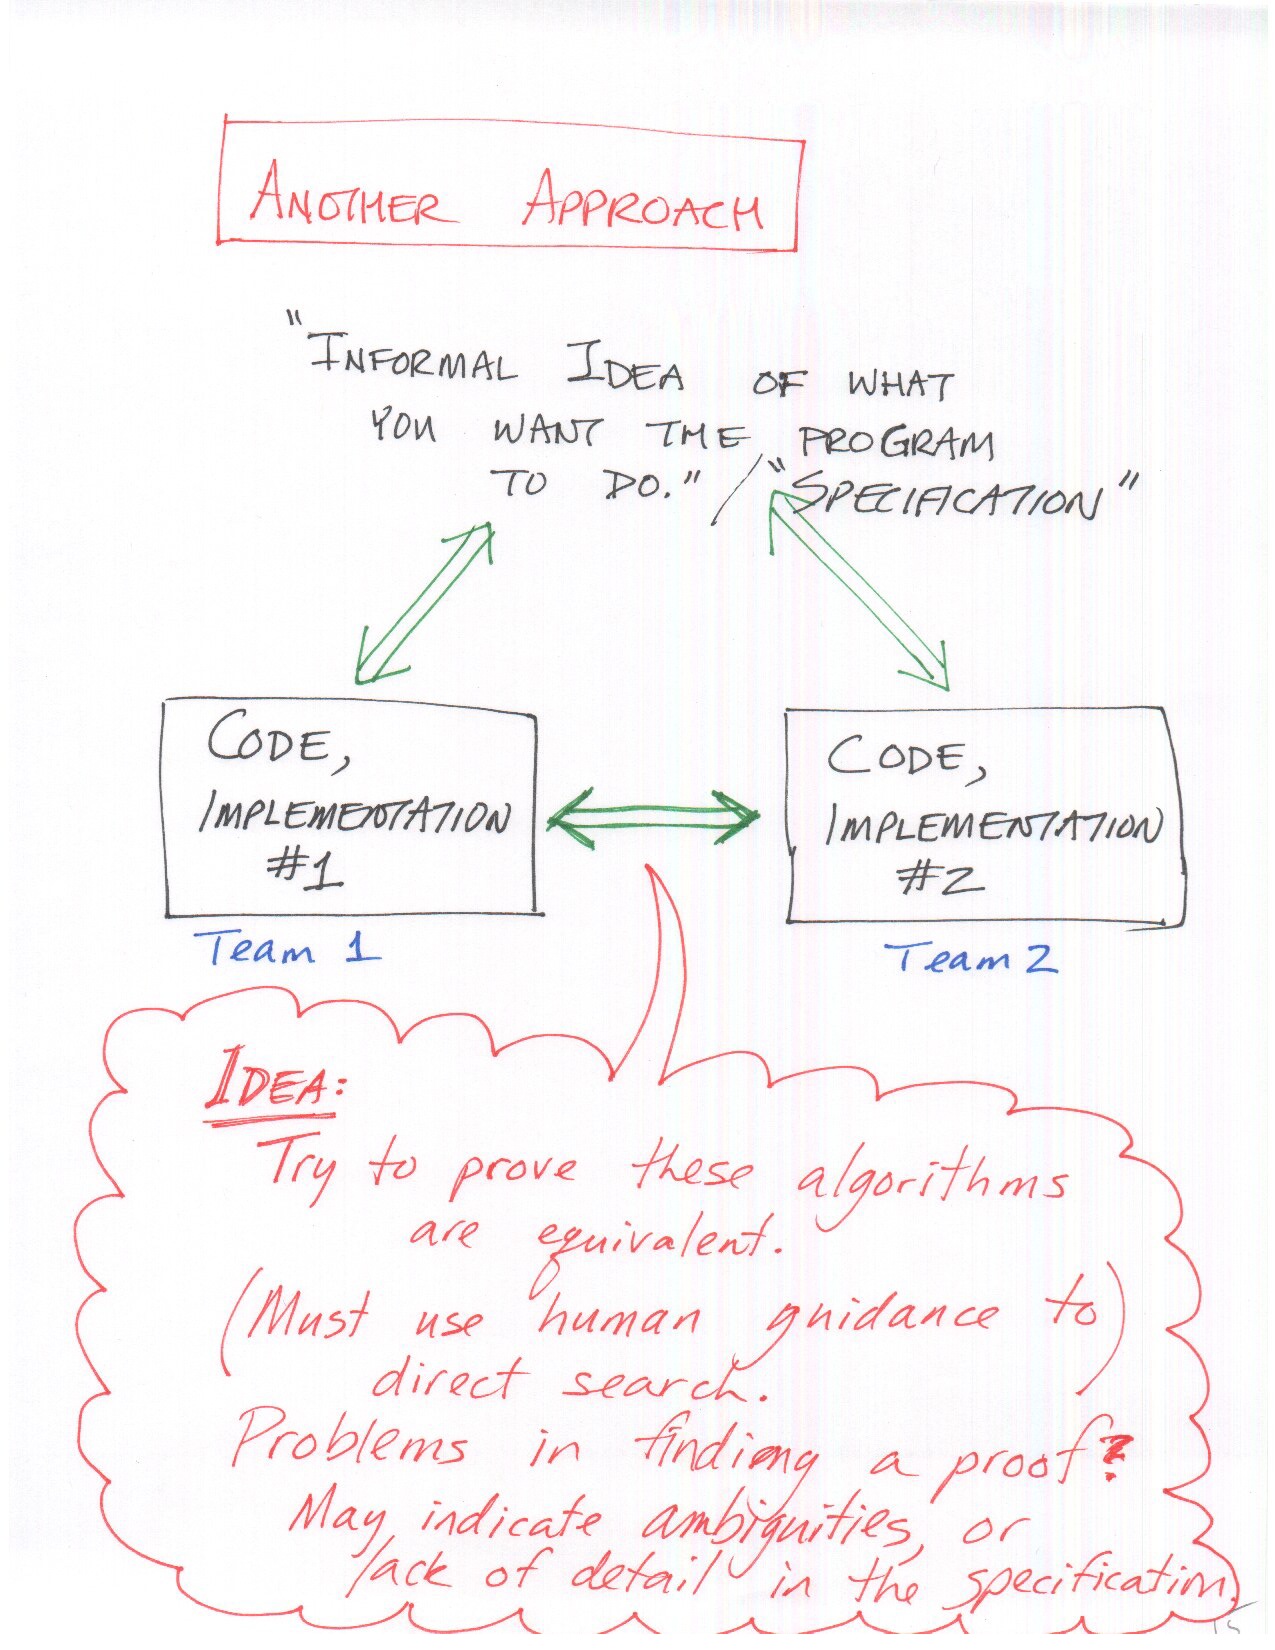 ANOTHER APPROACH
"INFORMAL IDEA OF WHAT
YOU WANT THE PROGRAM
TO DO." / "SPECIFICATION"
CODE,
IMPLEMENTATION
#1
CODE,
IMPLEMENTATION
#2
Team 1
Team 2
IDEA:
Try to prove these algorithms
are equivalent.
(Must use human guidance to
direct search.)
Problems in finding a proof?
May indicate ambiguities, or
lack of detail in the specification.
15